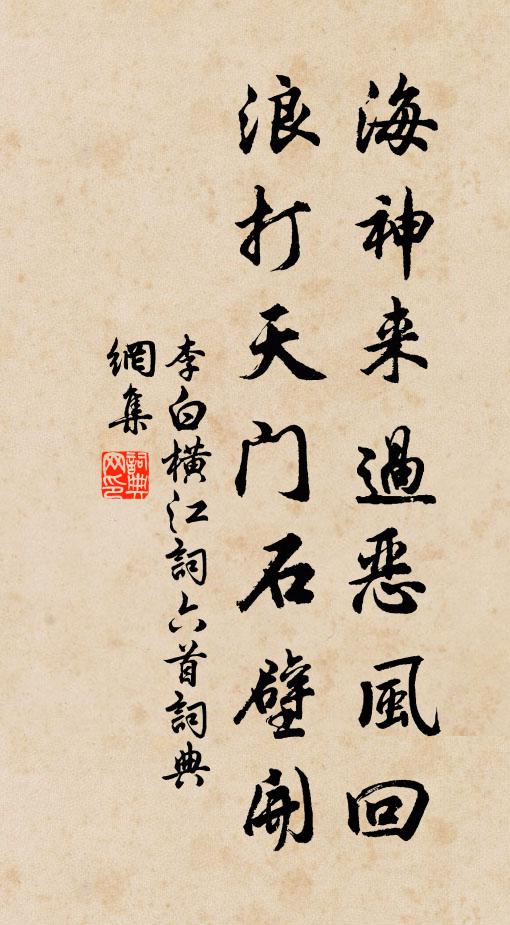 海神来過恶風回
浪打天门石壁開
李白橫江詞六首詞典
網集
詞典
网印